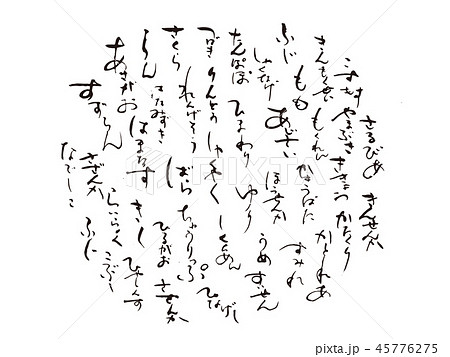 さるびあ きんせんか
こすもす やまぶき ききょう かたくり
きんもくせい もくれん かとれあ
ふじ もも あじさい ほうせんか すみれ
しゃくなげ ひまわり ゆり うめ すいせん
たんぽぽ しゃくやく しくらめん
つばき りんどう ちゅうりっぷ ひなげし
さくら れんげそう ばら ひるがお さざんか
らん はまなす ひやしんす
あさがお らいらっく こぶし
すずらん さざんか ふじ
なでしこ
pixta.jp - 45776275